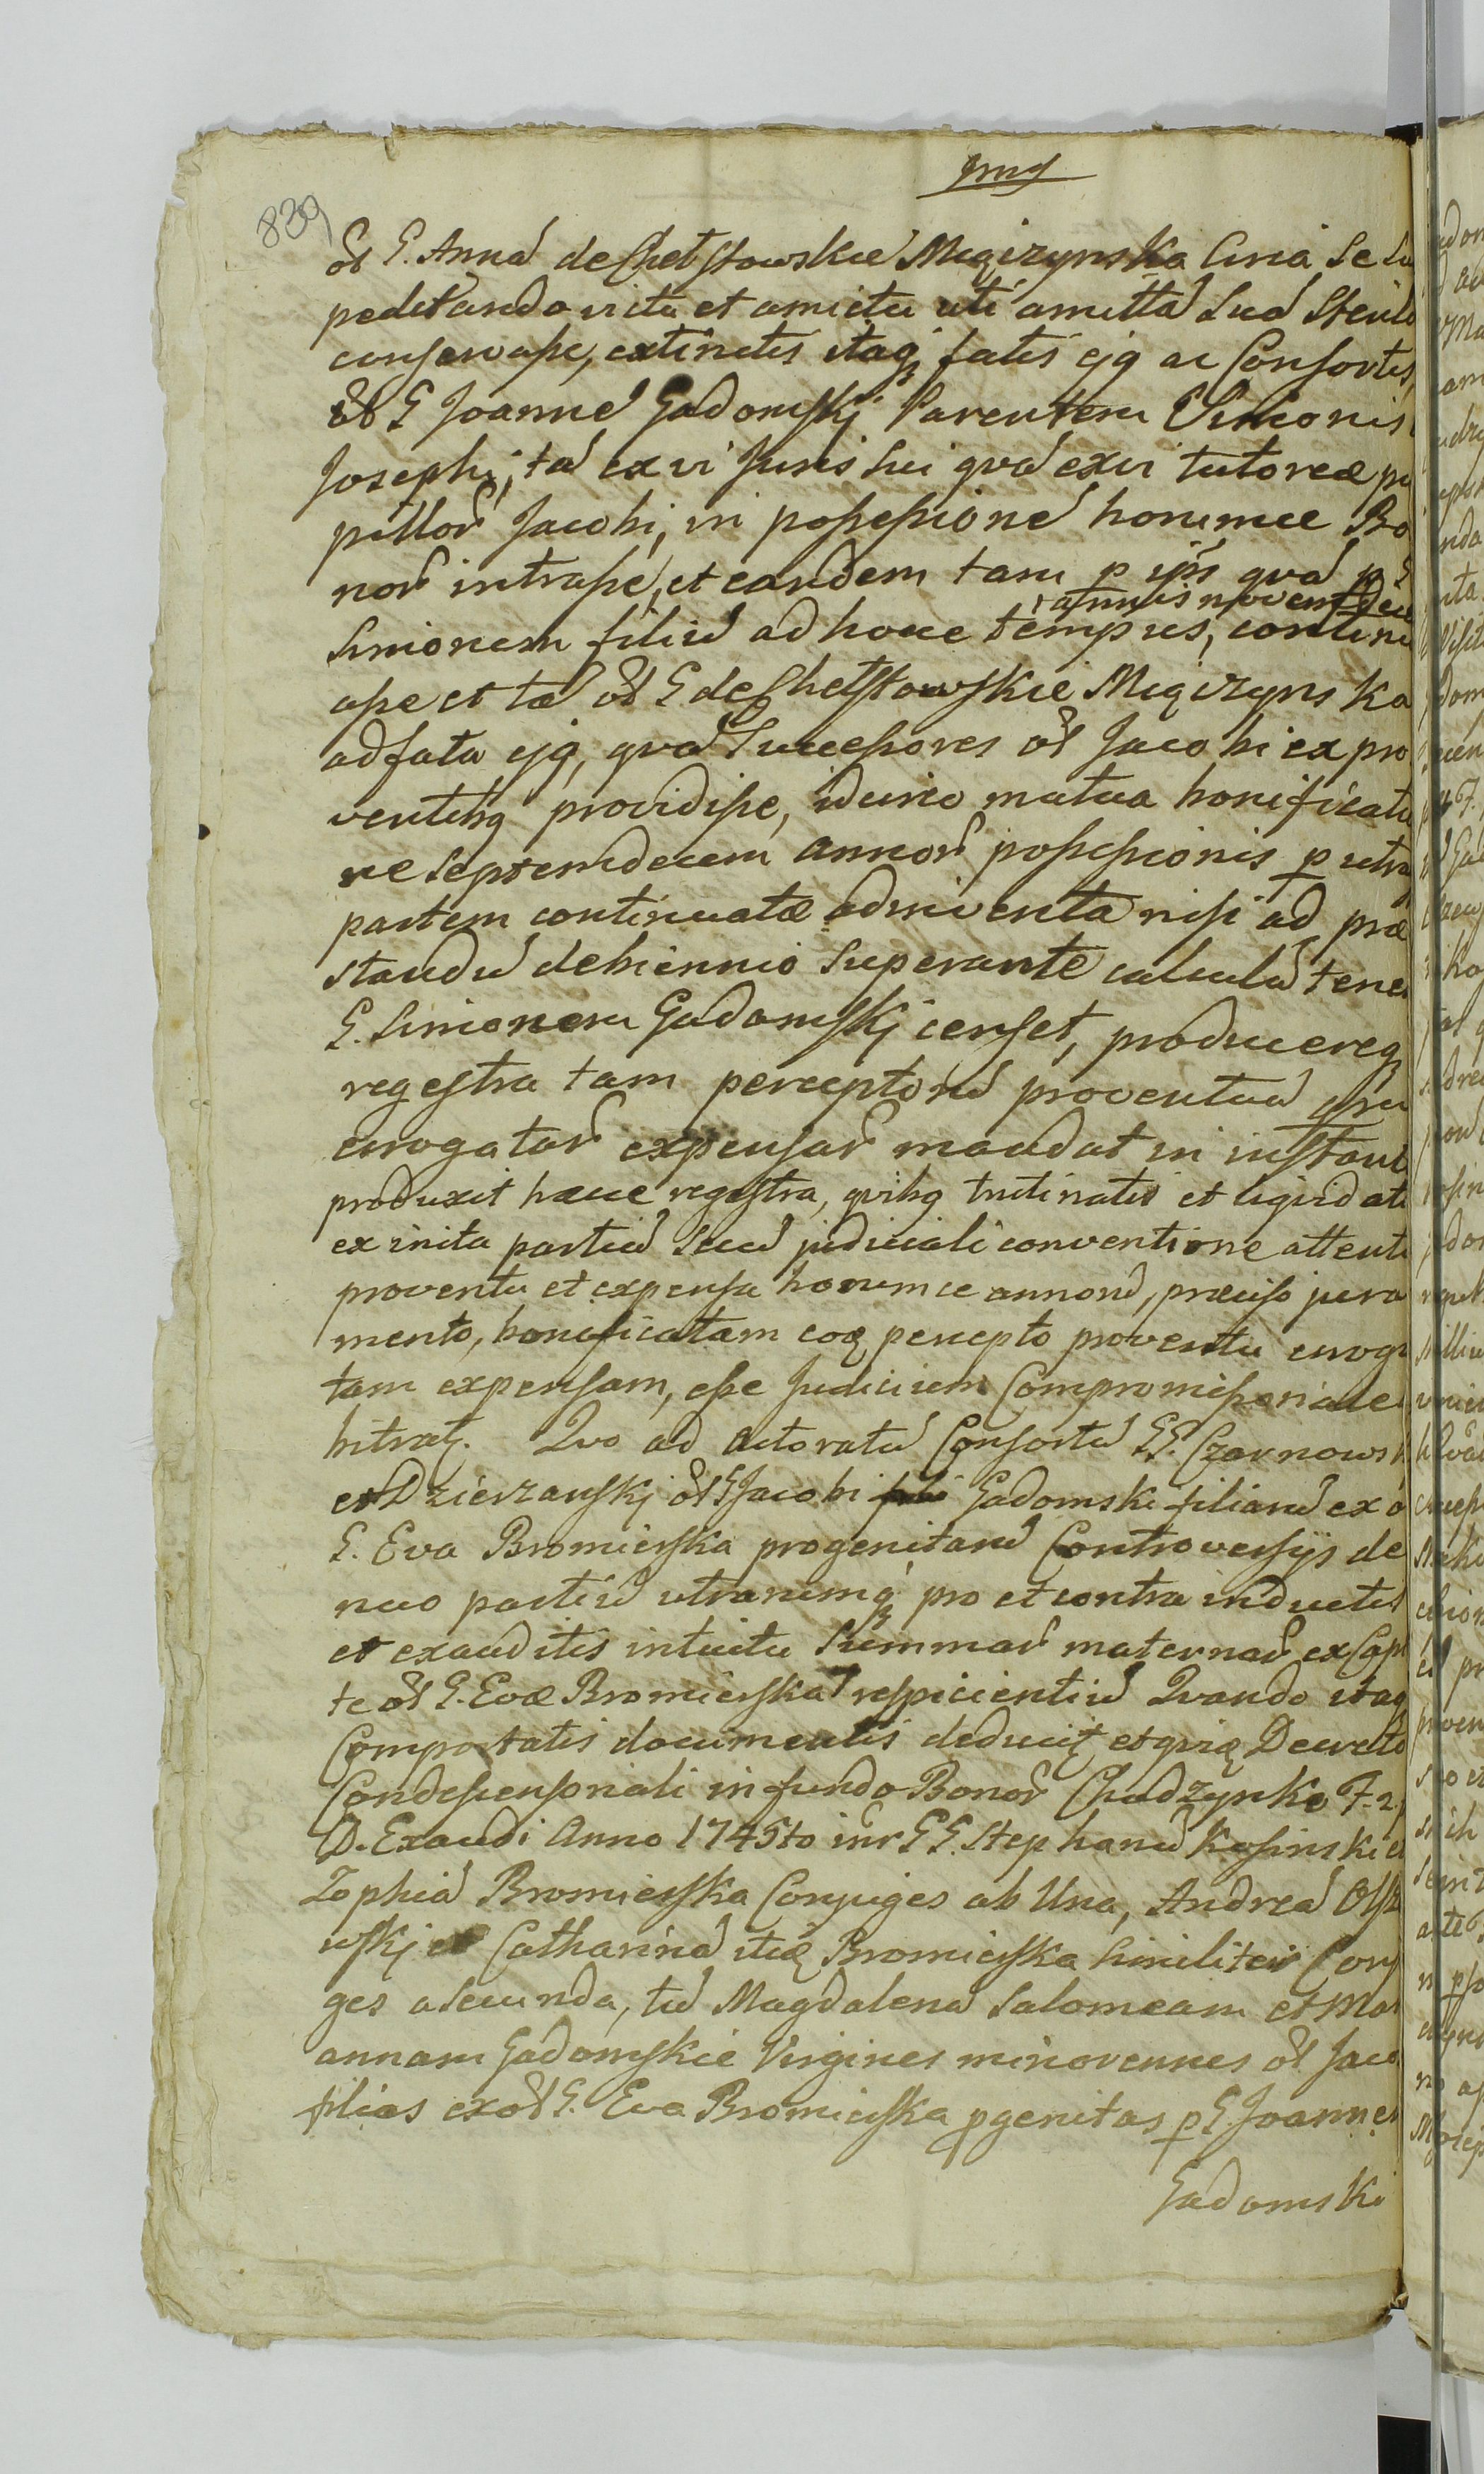 839
ol G. Annã de Chełstowskie Męzizynska circa se su
peditando victu et amictu uti amittã suã
conservaſse, extinctis itaqȝ fatis ejq ac Consortis,
ol G Joannẽ Gadomskj Parentem Simonis
Josephi, tã ex vi Juris sui qvã ex vi tutoreæ pu
pillor̃ Jacobi, in poſseſsionẽ horumce Bo
nor̃ intraſse, et eandem tam p ipś qvã p G
annis novemdec
Simonem filiũ ad hocce tempus, continu
aſse et tã ol G de Chełstowskie Męzizynska
ad fata ejq, qvã Succeſsores ol Jacobi ex pro
ventibq providiſse, idcirco mutua bonificatio
ne septemdecem annor̃ poſseſsionis p utra
partem continuatæ adinventa nisi ad præ
standũ de biennio superante calculũ tener
G. Simonem Gadomskj censet, producereqȝ
regestra tam perceptorũ proventuũ qvã
erogatar̃ expensar̃ mandat in instanti
produxit hæcce regestra, qvibq trutinatis et liqvidati
ex inita partiũ secũ judiciali conventione attenti
proventu et expensa horumce annorũ, præciso jura
mento, bonificatam eoq percepto proventu eroga
tam expensam, eſse Judicium Compromiſsoriale
bitratȝ. Qvo ad actoratũ Consortũ GG. Czarnowsk
et Dzierzanskj ol G Jacobi Gadomski filiarũ ex o
G. Eva Bromierska progenitarũ Controversijs de
nuo partiũ utrarumqȝ pro et contra inductis
et exauditis intuitu Summar̃ maternar̃ ex Capi
te ol G. Evæ Bromierskã respicientiũ Qvando itaq
Comportatis documentis deducitȝ et qviq Decreto
Condescensoriali in fundo Bonor̃ Chudzynko F. 2.
D. Exaudi Anno 1745to intr GG. Stephanũ Kosinski et
Zophiã Bromierska Conjuges ab Una, Andreã Olsze
wskj et Catharinã itiq Bromierska similiter Conj
ges a secunda, tũ Magdalenã Salomeam et Mar
annam Gadomskie Virgines minorennes ol Jaco
filias ex ol G. Eva Bromierska pgenitas p G. Joannem
Gadomski